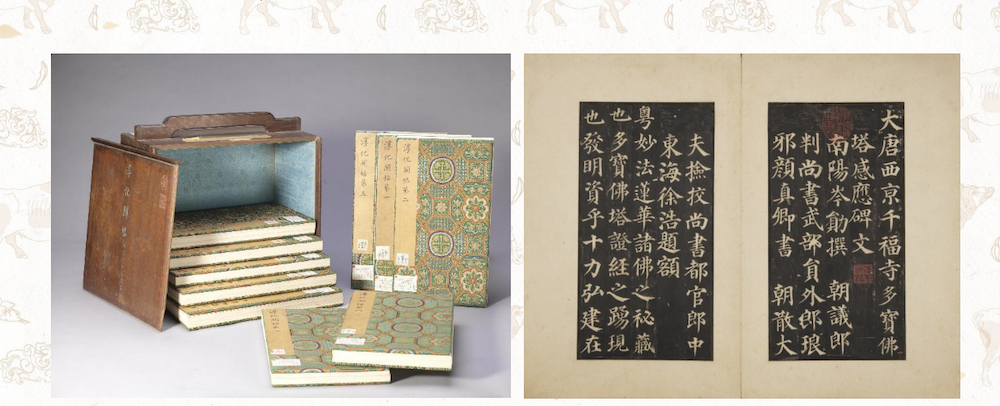 淳化閣帖
淳化閣帖第五
淳化閣帖第一
淳化閣帖第二
大唐西亰千福寺多寶佛
塔感應碑文
南陽岑勛撰 朝議郎
判尚書武部員外郎琅
邪顏真卿書 朝散大
夫撿挍尚書都官郎中
東海徐浩題額
粵妙法蓮華諸佛之秘藏
也多寶佛塔證經之踴現
也發明資乎十力弘建在